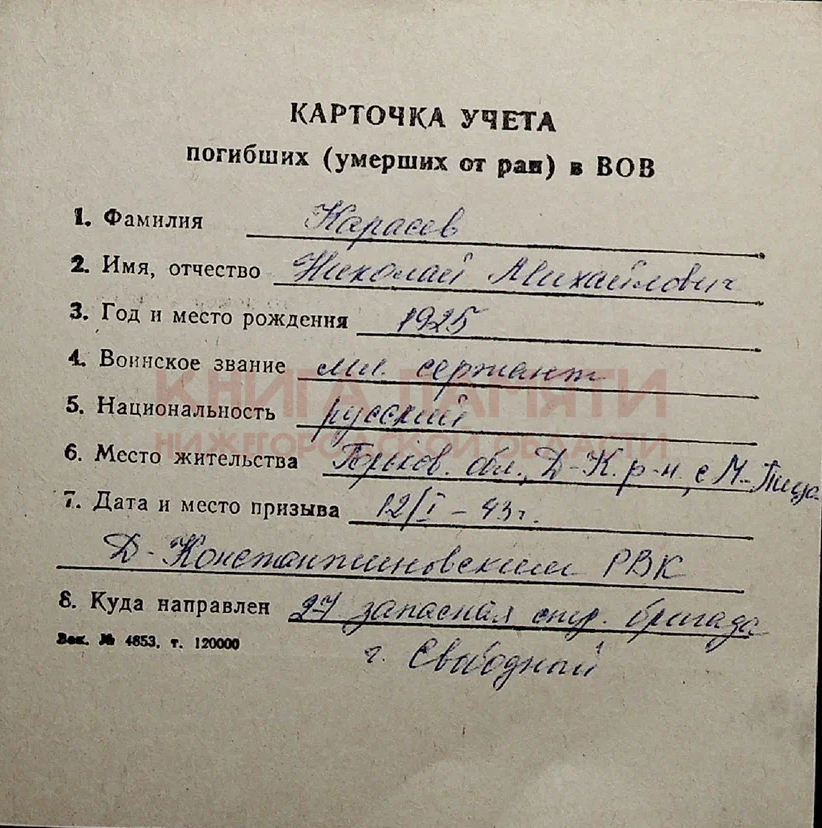 КАРТОЧКА УЧЕТА
погибших (умерших от ран) в ВОВ
1. Фамилия Карасев
2. Имя, отчество Николай Михайлович
3. Год и место рождения 1925
4. Воинское звание мл. сержант
КНИГА ПАМЯТИ
5. Национальность русский
НИЖЕГОРОДСКОЙ ОБЛАСТИ
6. Место жительства Горьков. обл., Д-К. р-н, с М-Пица
7. Дата и место призыва 12/I – 43 г.
Д-Константиновским РВК
8. Куда направлен 27 запасная стр. бригада
Зак. № 4853, т. 120000
г. Свободный